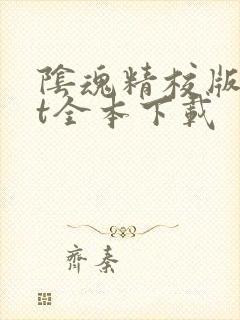 陰魂精校版
t全本下載
齊秦